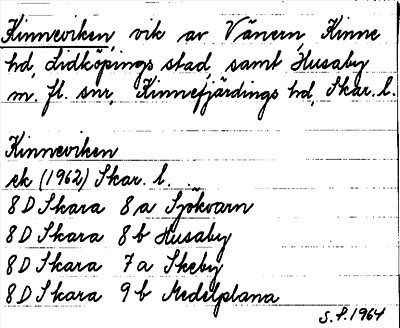 Kinneviken, vik av Vänern, Kinne
hd, Lidköpings stad, samt Husaby
m. fl. snr, Kinnefjärdings hd, Skar. l.
Kinneviken
ek (1962) Skar. l.
8D Skara 8a Sjökvarn
8D Skara 8b Husaby
8D Skara 7a Skeby
8D Skara 9b Medelplana
S.P. 1964